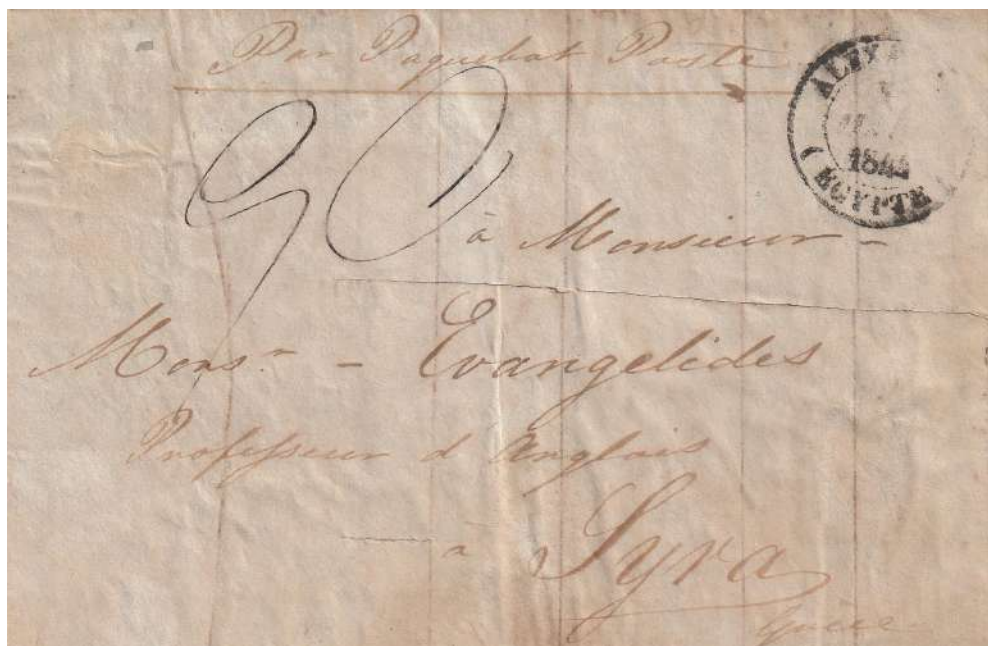 Par Paquebot Poste
ALEX
1844
(EGYPTE
à Monsieur -
Monsr. - Evangelides
Professeur d Anglais
a Syra
Grèce